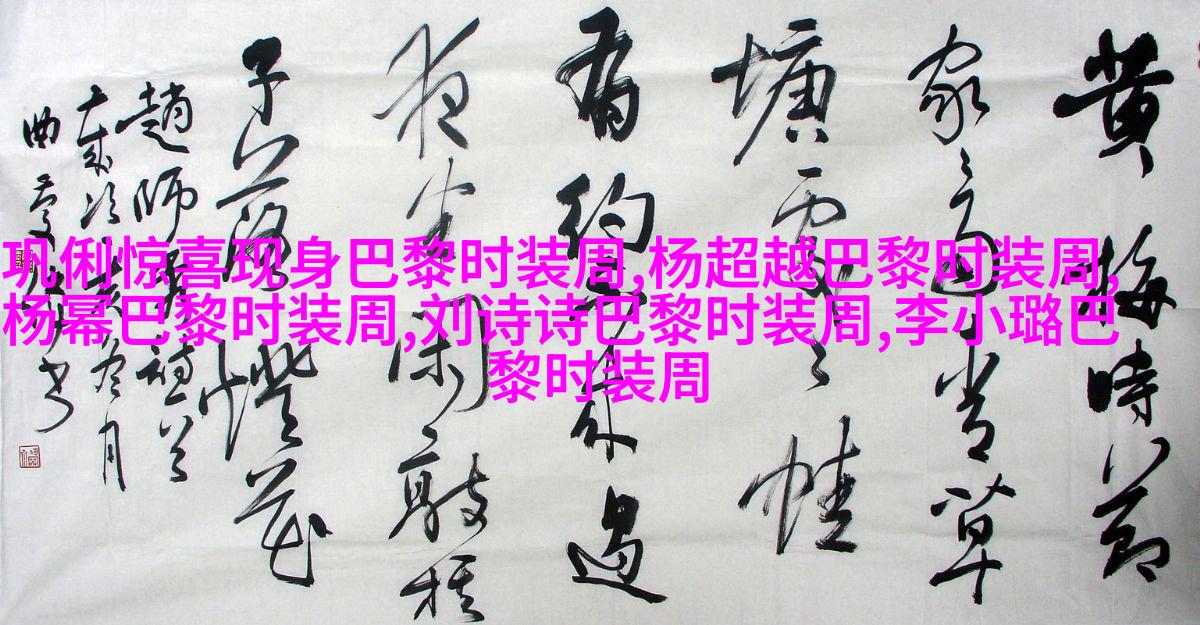 巩俐惊喜现身巴黎时装周,杨超越巴黎时装周,
杨幂巴黎时装周,刘诗诗巴黎时装周,李小璐巴
黎时装周
黄梅時節
家々雨青草
塘處々蛙
有约不来過
夜半闲敲棋
子落燈花
趙師秀